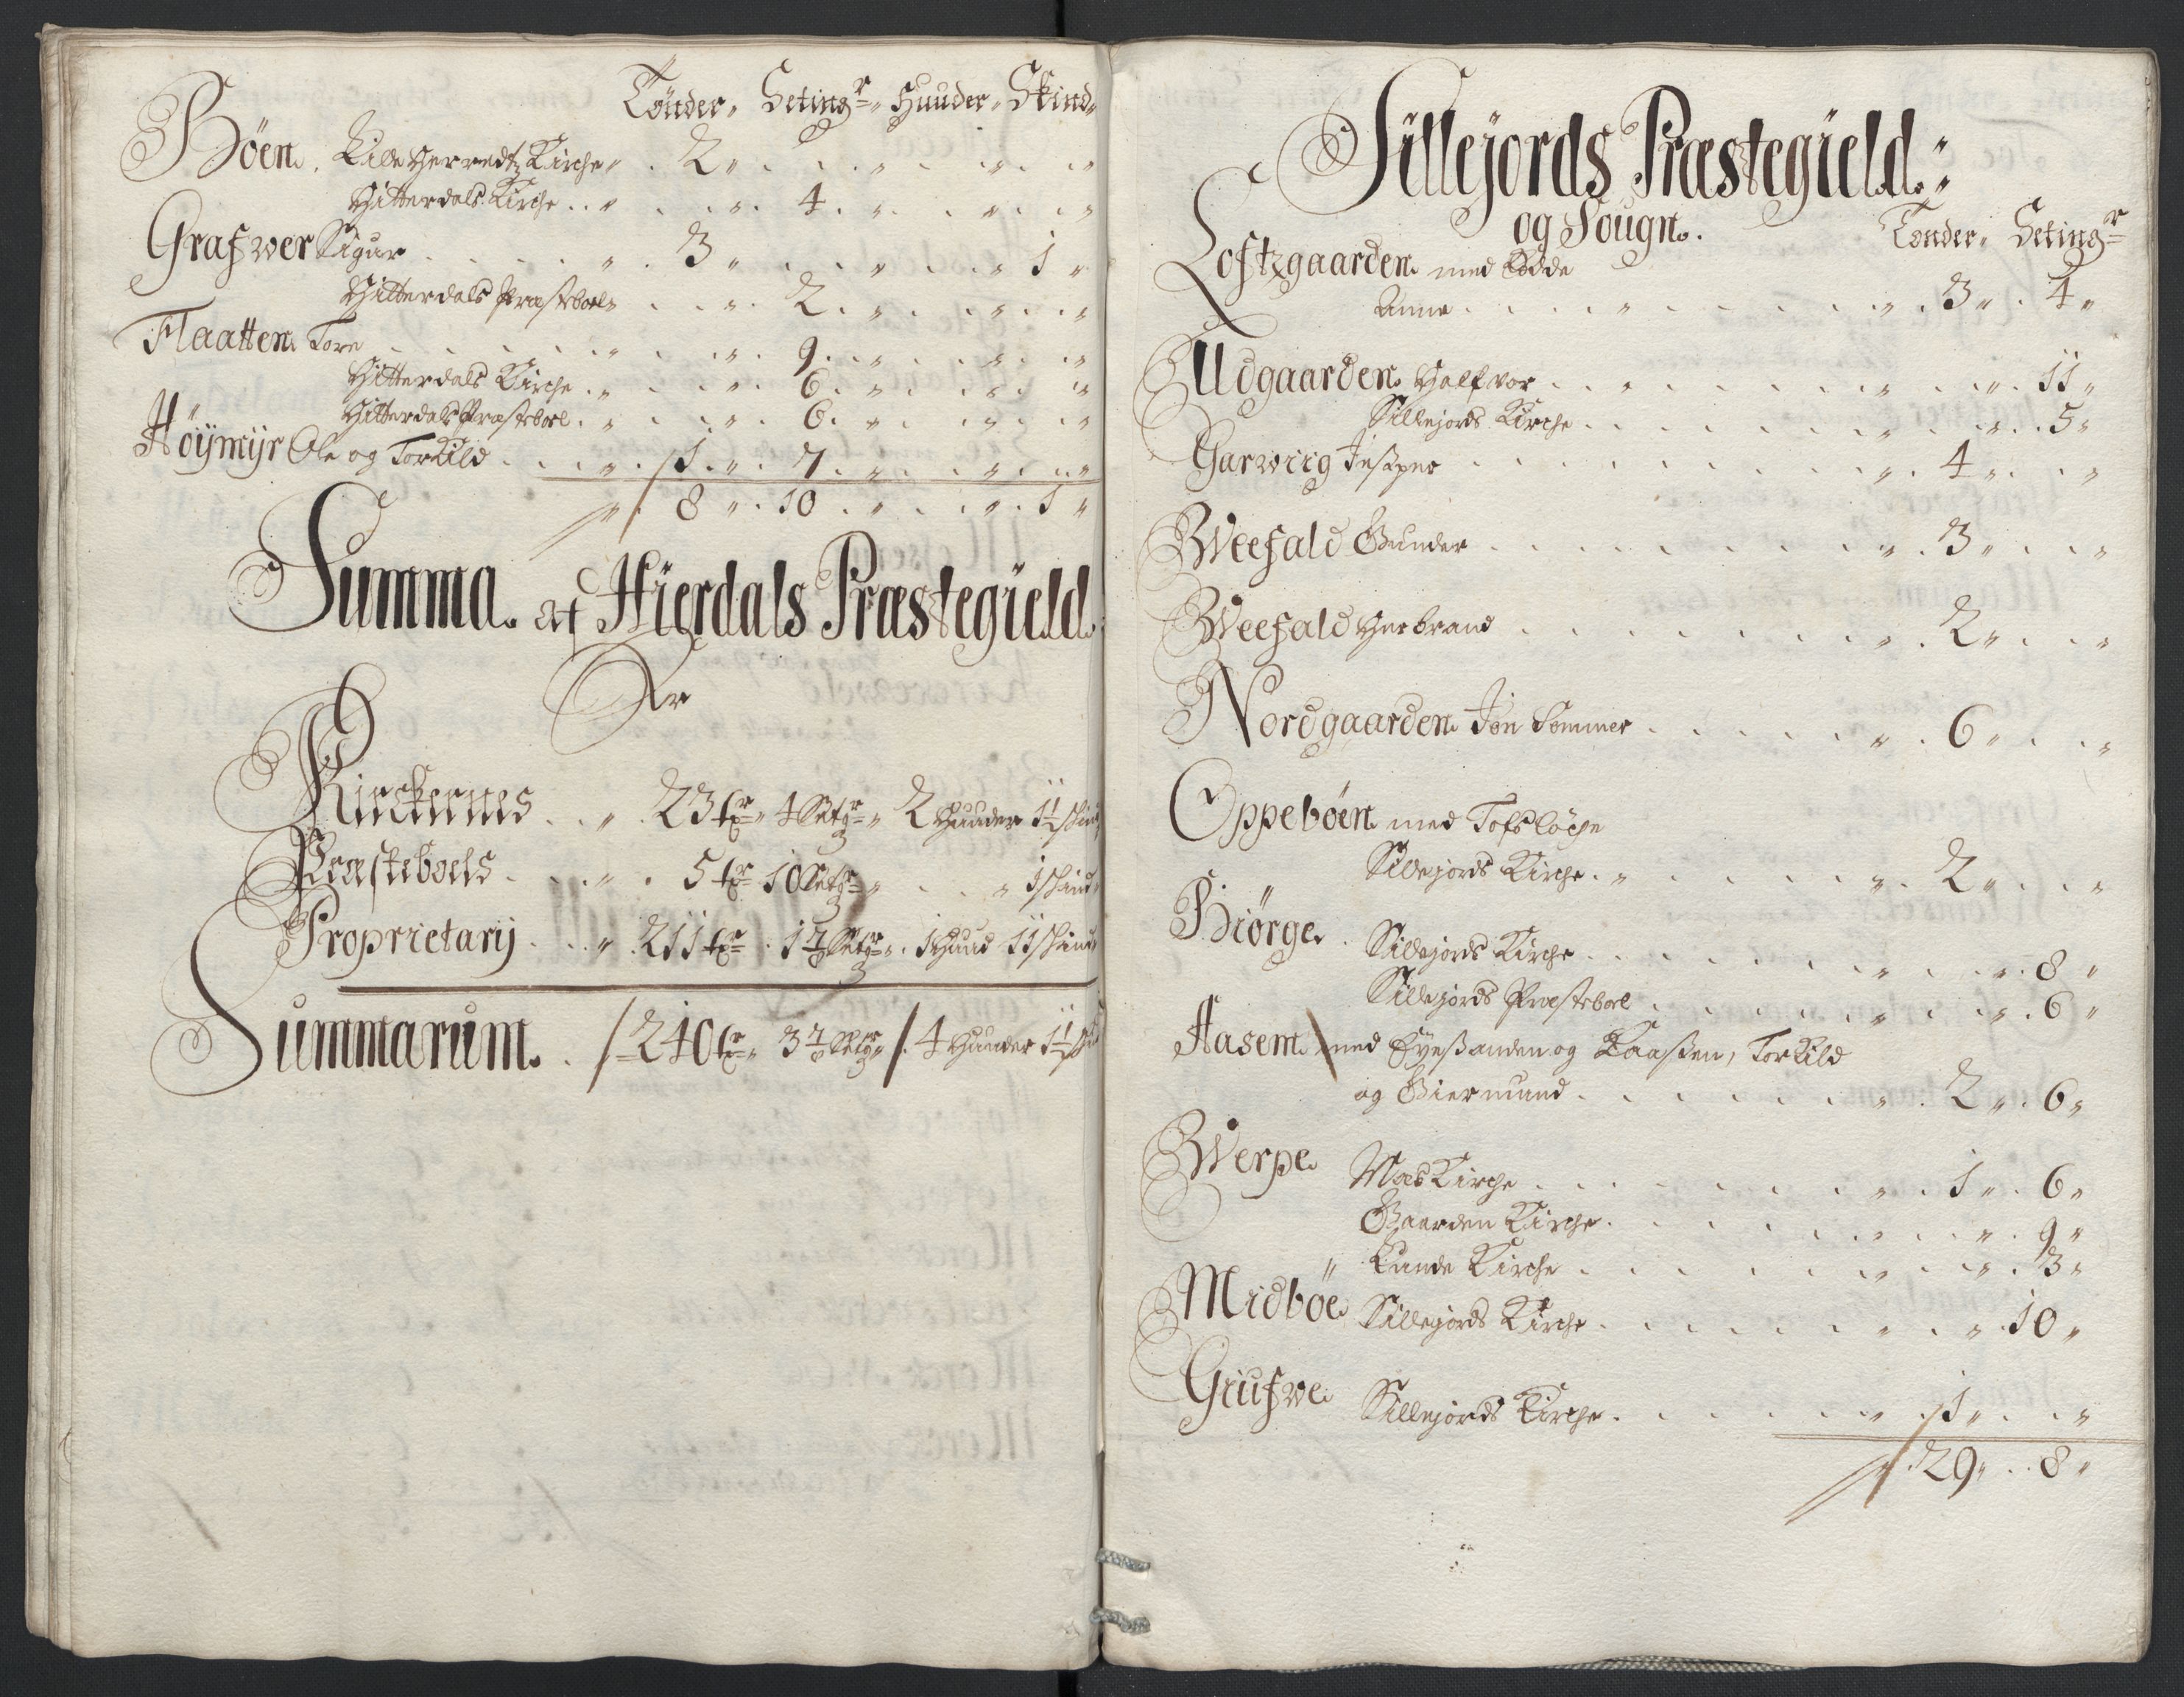 Tønder, Setingr, Huuder, Skind,
Böen. Lille Herredtz Kirche 2
Hitterdals Kirche 4
Grafwer Sigur 3 1
Hitterdals Præstebol 2
Flaatten Tore 9
Hitterdals Kirche 6
Hitterdals Præstebol 6
Höijmijr Ole og Torkild 1 7
8 10 1
Summa. af Hierdals Præstegield
Er
Kirckernes 23 tr 4 Setgr 2 Huuder 1½ skind
Præsteboels 5 tr 10 Setgr 1 skind
Proprietarij 211 tr 1½ Setgr 1 Huud 11 skind
Summarum. 240 tr 3½ Setgr 4 Huuder 1½
Sillejords Præstegield.
og Sougn. Tønder, Setingr
Loftzgaarden med Lodde
Anne 3 4
Udgaarden Halfvor 11
Sillejords Kirche 5
Garwiig Jesper 4
Weefald Gunder 3
Weefald Herbrand 2
Nordgaarden Jon Sommer 6
Oppeböen med Tofslöche
Sillejords Kirche 2
Biörge. Sillejords Kirche 8
Sillejords Præstebol 6
Aasem med Øyessanden og Kaassen, Torkild
og Giermund 2 6
Werpe Maes Kirche 1 6
Gaarden Kirche 9
Lunde Kirche 3
Midböe Sillejords Kirche 10
Grufwe Sillejords Kirche 1
29 8